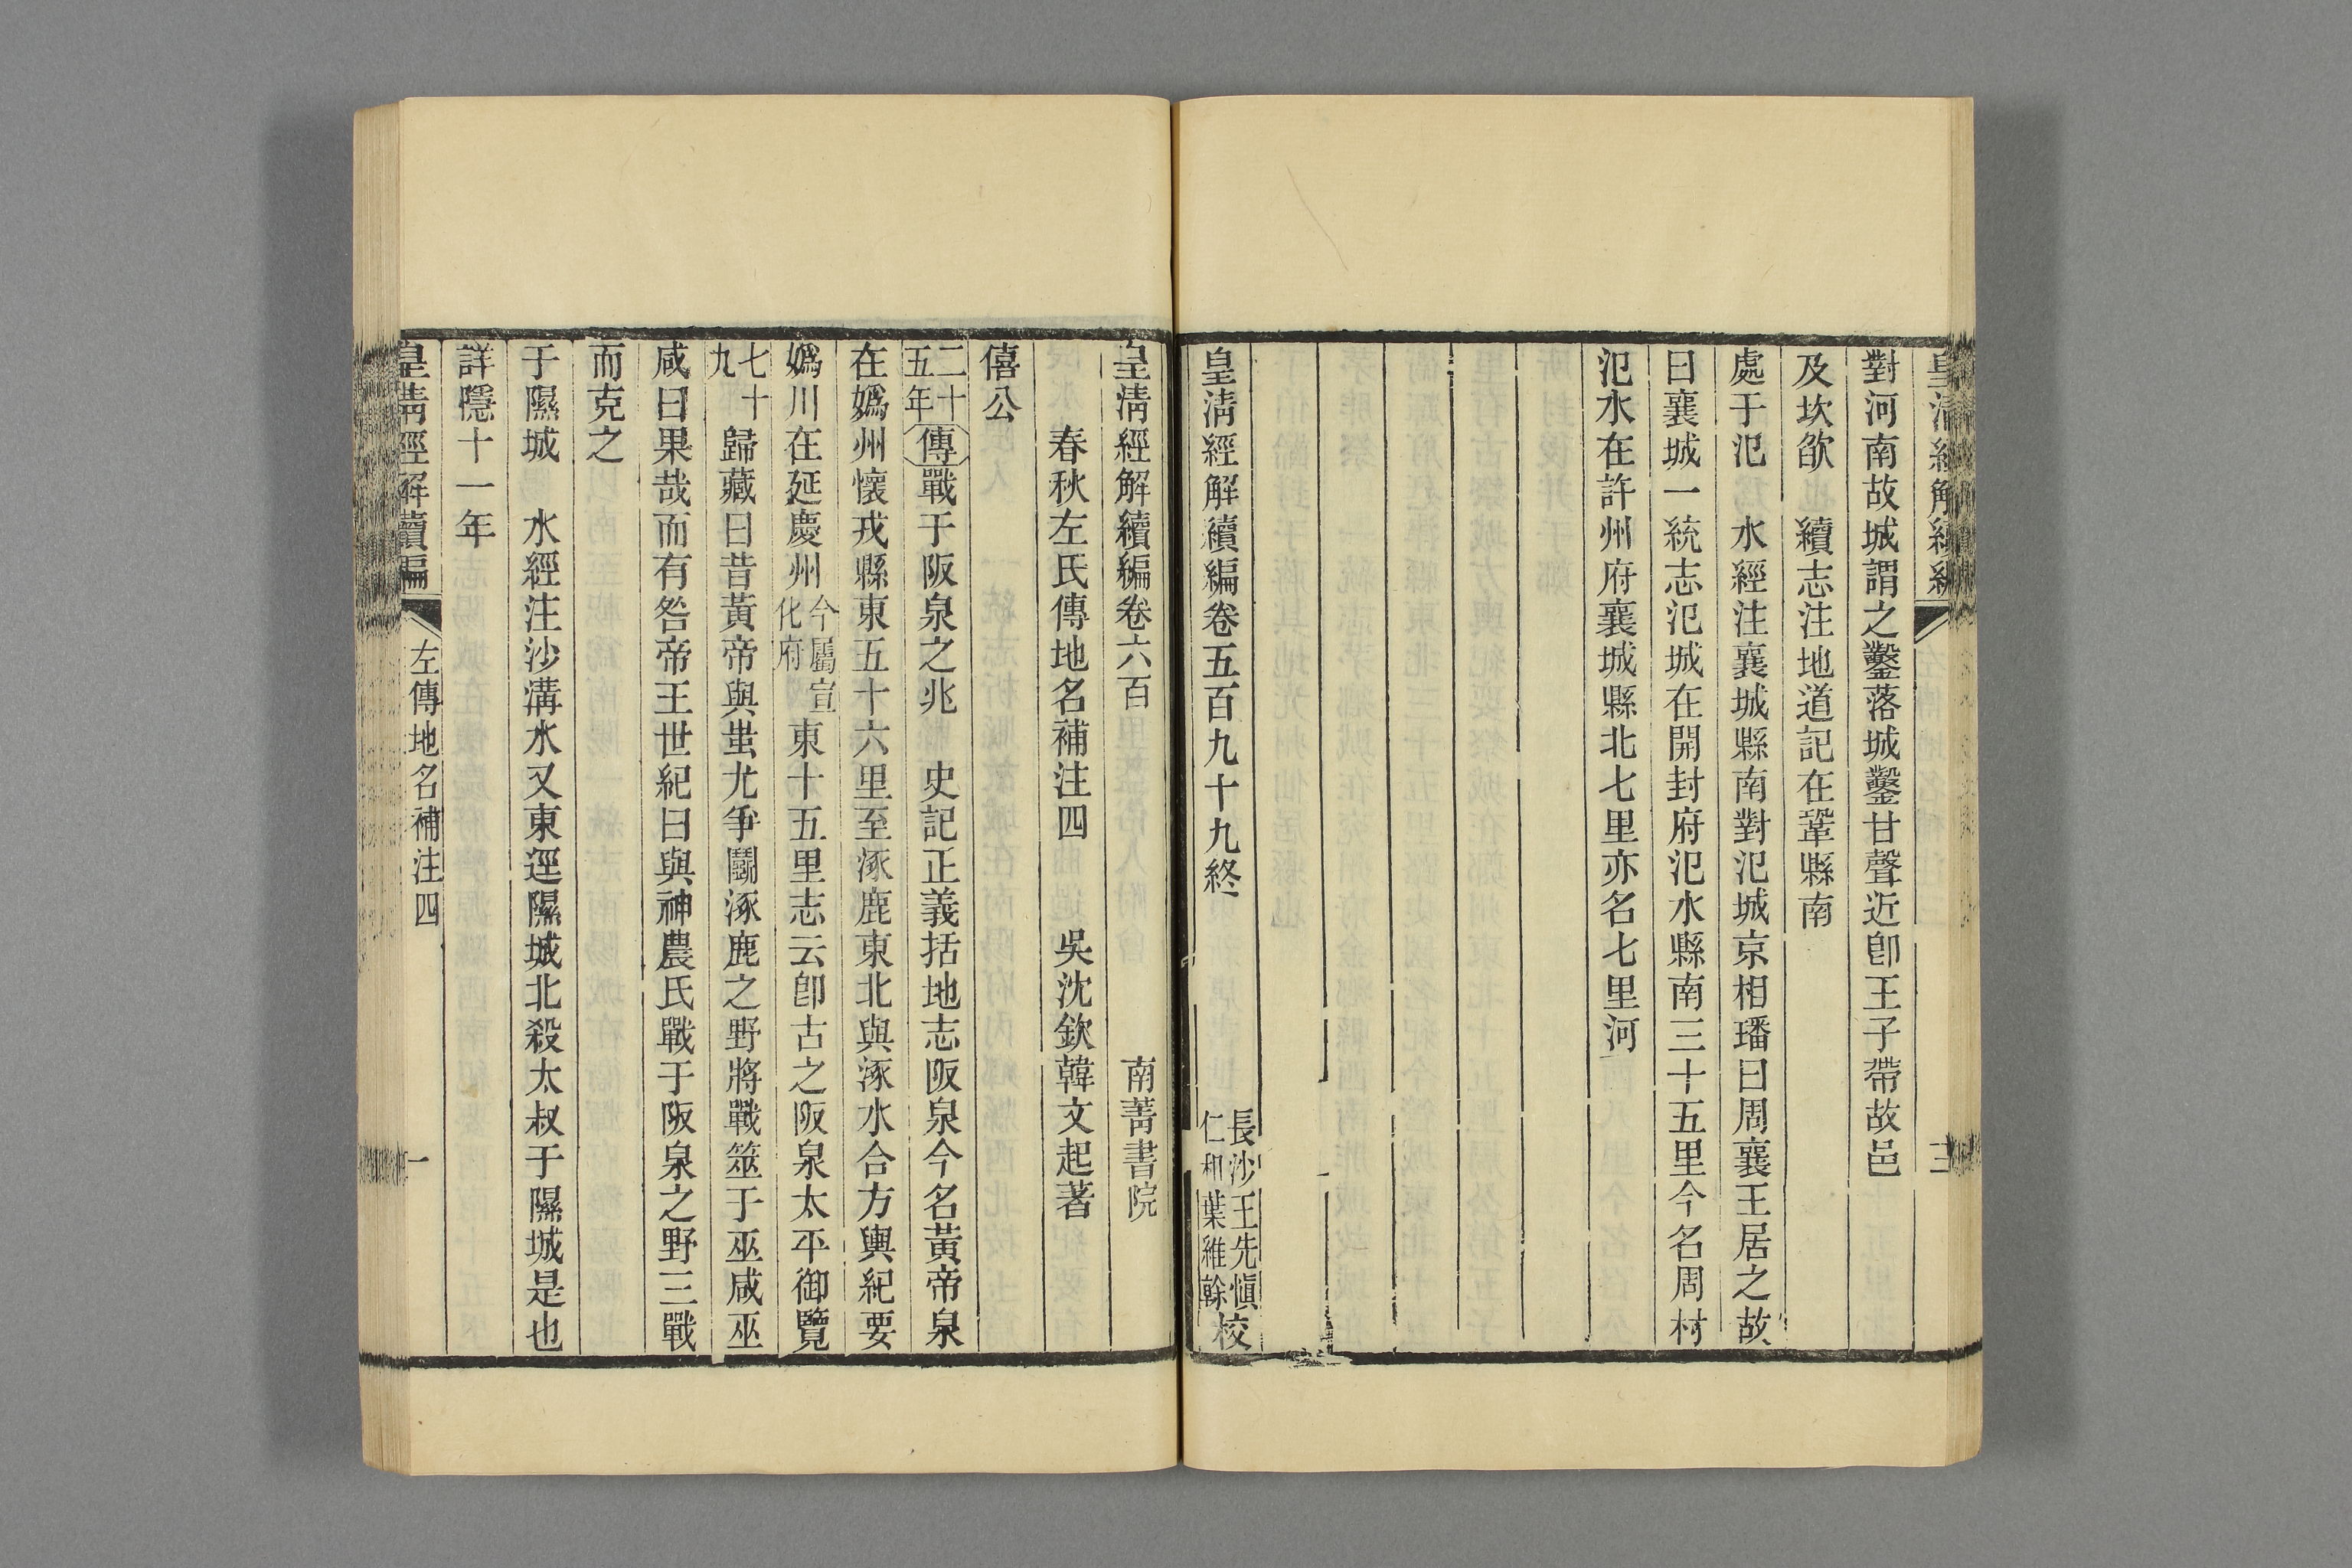 皇清經解續編
三
對河南故城謂之鑿落城鑿甘聲近卽王子帶故邑
及坎欿　續志注地道記在鞏縣南
處于氾　水經注襄城縣南對氾城京相璠曰周襄王居之故
曰襄城一統志氾城在開封府氾水縣南三十五里今名周村
氾水在許州府襄城縣北七里亦名七里河
皇清經解續編卷五百九十九終
長沙王先愼
仁和葉維幹校
皇清經解續編卷六百　南菁書院
春秋左氏傳地名補注四　吳沈欽韓文起著
僖公
二十五年傳戰于阪泉之兆　史記正義括地志阪泉今名黃帝泉
在嬀州懷戎縣東五十六里至涿鹿東北與涿水合方輿紀要
嬀川在延慶州今屬宣化府東十五里志云卽古之阪泉太平御覽
七十九　歸藏曰昔黃帝與蚩尤爭鬭涿鹿之野將戰筮于巫咸巫
咸曰果哉而有咎帝王世紀曰與神農氏戰于阪泉之野三戰
而克之
于隰城　水經注沙溝水又東逕隰城北殺太叔于隰城是也
詳隱十一年
皇清經解續編
左傳地名補注四
一